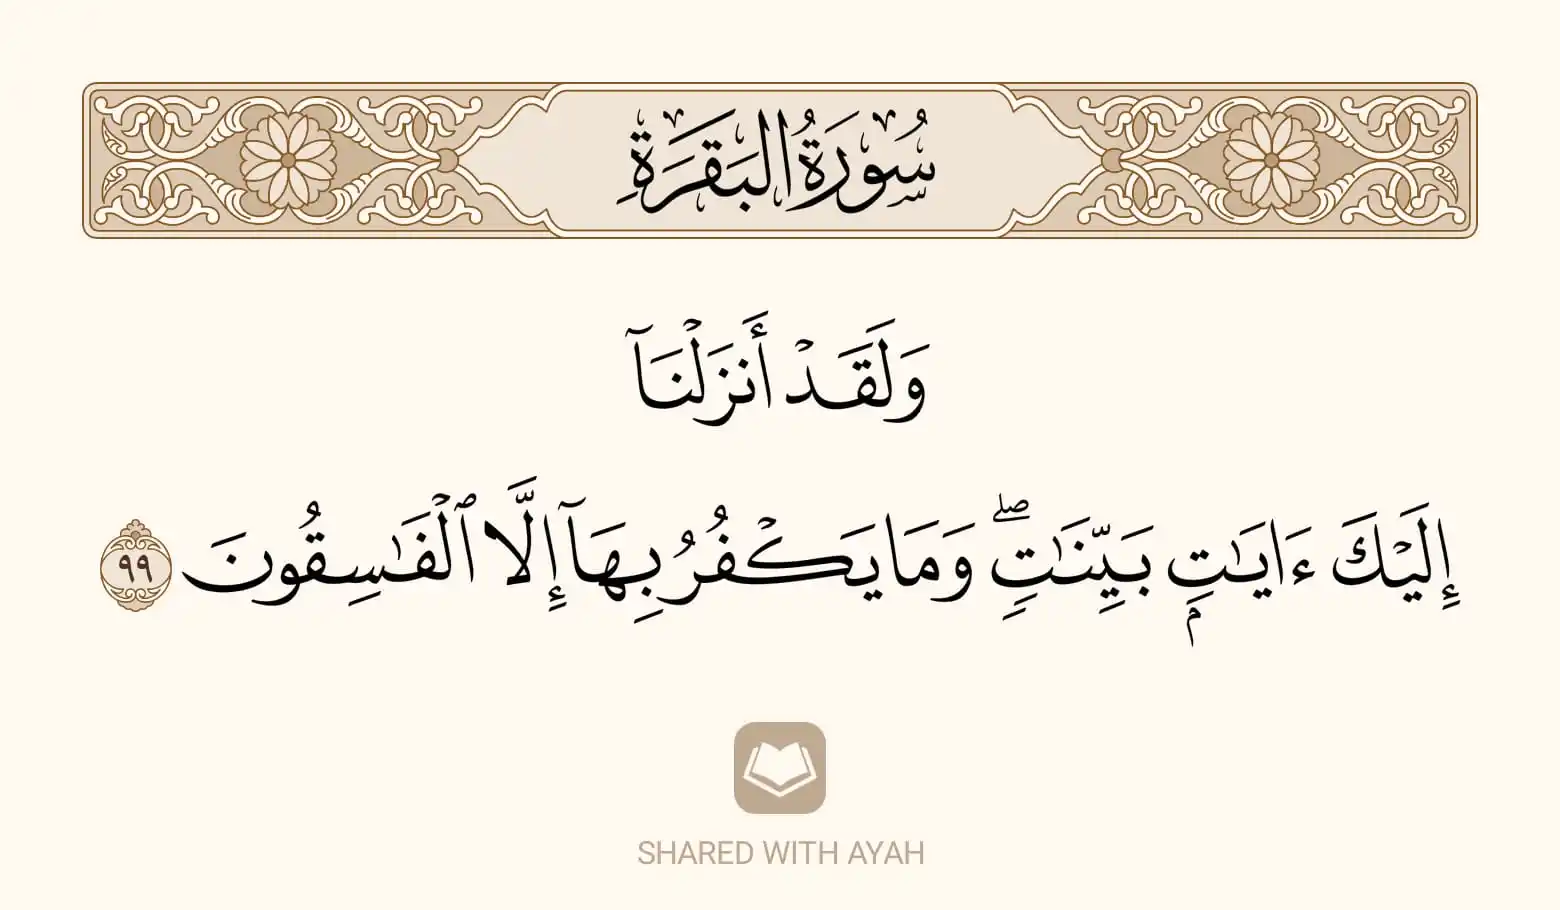 سُورَةُ البَقَرَةِ
وَلَقَدۡ أَنزَلۡنَآ
إِلَيۡكَ ءَايَٰتِۭ بَيِّنَٰتٖۖ وَمَا يَكۡفُرُ بِهَآ إِلَّا ٱلۡفَٰسِقُونَ ٩٩
SHARED WITH AYAH